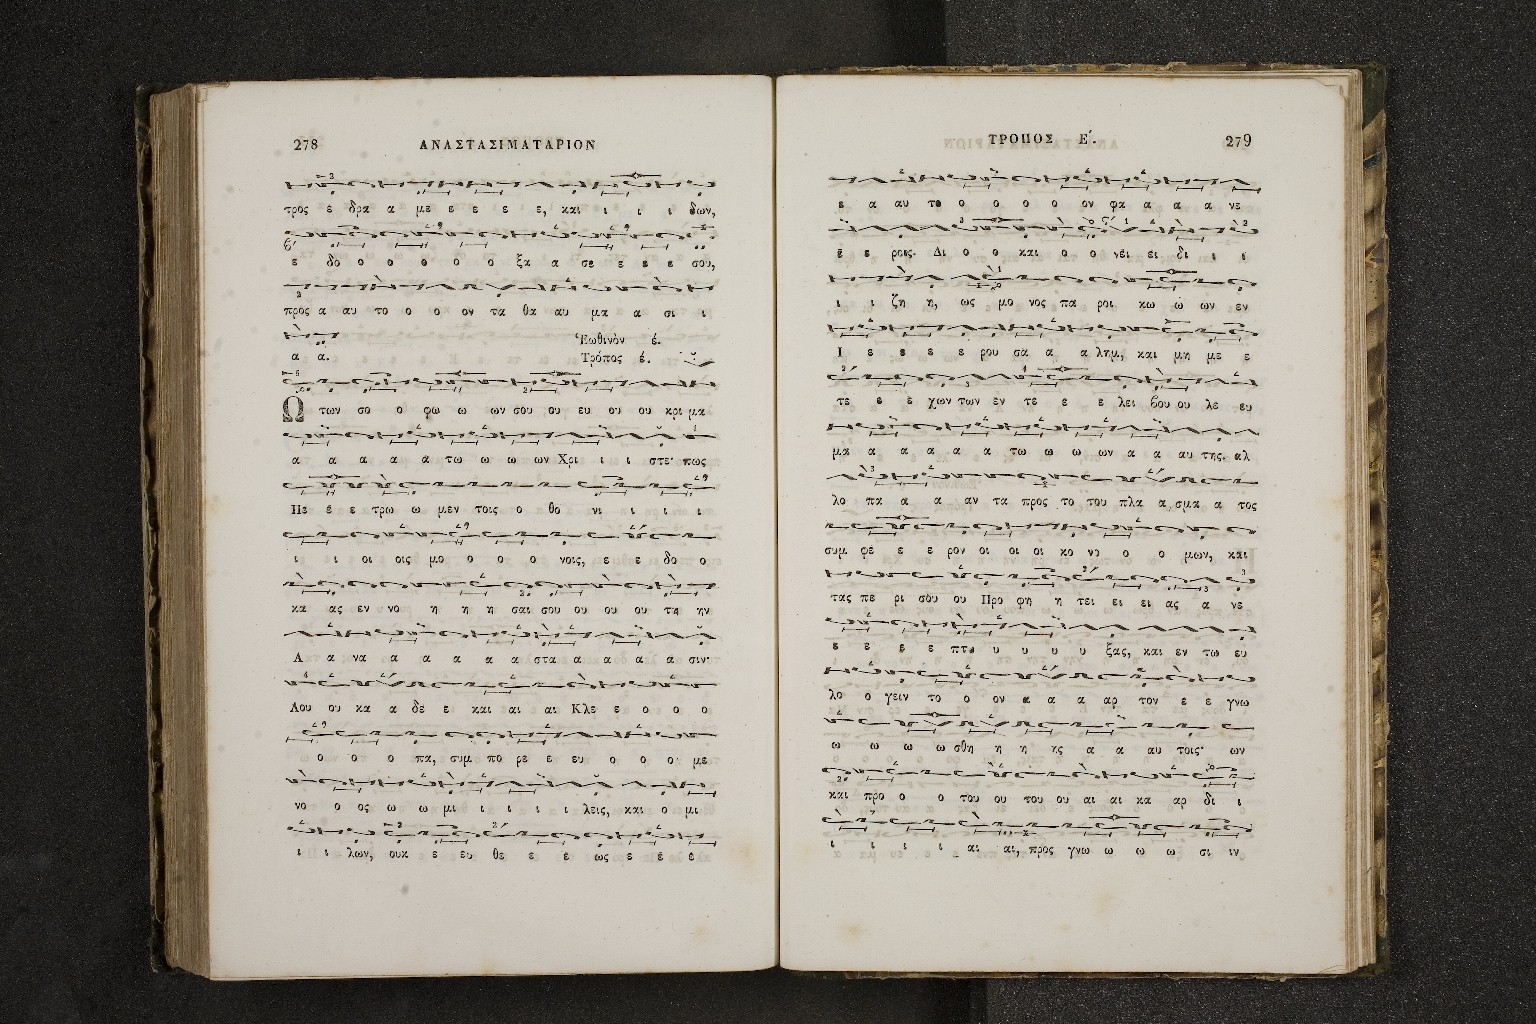 278 ΑΝΑΣΤΑΣΙΜΑΤΑΡΙΟΝ
τρος ε δρα α με ε ε ε ε, και ι ι ι δων,
ε δο ο ο ο ο ο ξα α σε ε ε ε ε σου,
προς α αυ το ο ο ον τα θα αυ μα α σι ι
Ἑωθινὸν έ.
α α. Τρόπος έ.
Ω των σο ο φω ω ων σου ου ευ ου ου κρι μα
α α α α α τω ω ω ων Χρι ι ι στε· πως
Πε ε ε τρω ω μεν τοις ο θο νι ι ι ι
ι ι οι οις μο ο ο ο νοις, ε ε δο ο
κα ας εν νο η η η σαι σου ου ου ου τη ην
Α α να α α α α α στα α α α α σιν·
Λου ου κα α δε ε και αι αι Κλε ε ο ο ο
ο ο ο πα, συμ πο ρε ε ευ ο ο ο με
νο ο ος ω ω μι ι ι ι ι λεις, και ο μι
ι ι λων, ουκ ε ευ θε ε ε ως ε ε ε
ΤΡΟΠΟΣ Ε΄. 279
ε α αυ το ο ο ο ο ον φα α α α νε
ε ε ροις. Δι ο ο και ο ο νει ει δι ι ι
ι ι ζη η, ως μο νος πα ροι κω ω ων εν
Ι ε ε ε ε ρου σα α α λημ, και μη με ε
τε ε ε χων των εν τε ε ε λει βου ου λε ευ
μα α α α α α τω ω ω ων α α αυ της. αλ
λο πα α α αν τα προς το του πλα α σμα α τος
συμ φε ε ε ρον οι οι οι κο νο ο ο μων, και
τας πε ρι σου ου Προ φη η τει ει ει ας α νε
ε ε ε ε πτυ υ υ υ υ ξας, και εν τω ευ
λο ο γειν το ο ον α α α αρ τον ε ε γνω
ω ω ω ω σθη η η ης α α αυ τοις· ων
και προ ο ο του ου του ου αι αι κα αρ δι ι
ι ι ι ι αι αι, προς γνω ω ω ω σι ιν